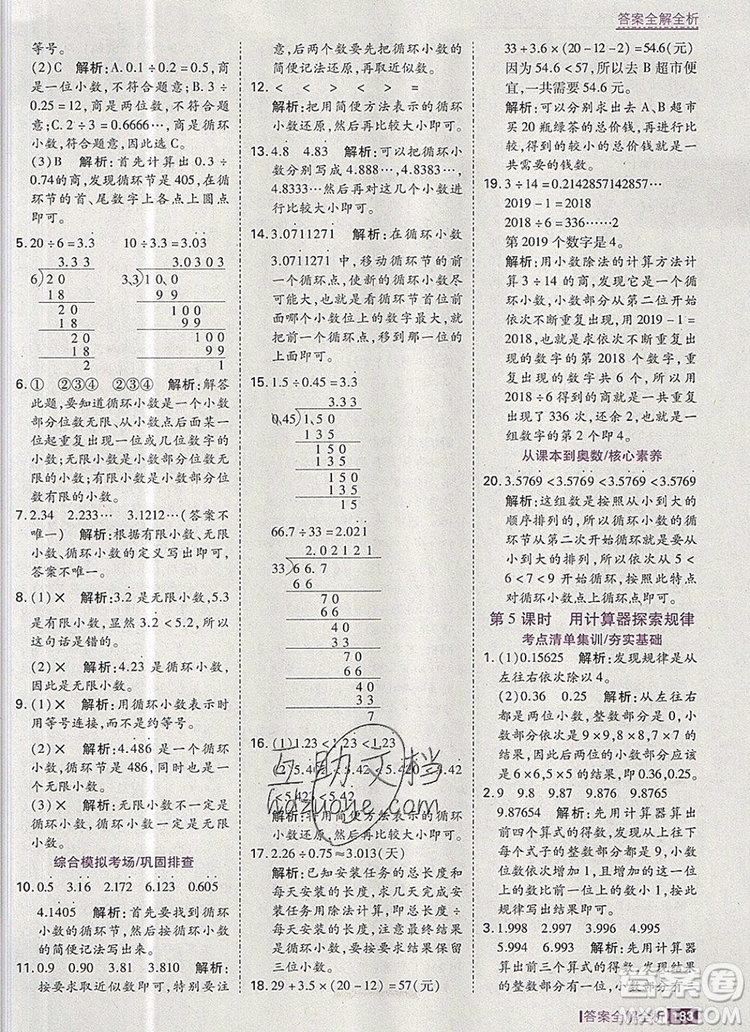 答案全解全析
等号。
(2)C 解析:A.0.1÷0.2=0.5,商
是一位小数,不符合题意;B.0.3÷
0.25=0.12,商是两位数,不符合题
意;C.2÷3=0.6666…,商是循环
小数,符合题意,因此选C。
(3)B 解析:首先计算出0.3÷
0.74的商,发现循环节是405,在循
环节的首、尾数字上各点上圆点
即可。
5. 20÷6=3.3 10÷3.3=3.03
3.33
6)20
18
20
18
20
18
2
3.0303
3.3)10
99
100
99
100
99
1
6.① ②③④ ②③④ 解析:解答
此题,要知道循环小数是一个小数
部分位数无限、从小数点后面某一
位起重复出现一位或几位数字的
小数;无限小数是小数部分位数无
限的小数;有限小数是小数部分位
数有限的小数。
7. 2.34 2.233… 3.1212…(答案不
唯一) 解析:根据有限小数、无限
小数、循环小数的定义写出即可,
答案不唯一。
8.(1)× 解析:3.2是无限小数,5.3
是有限小数,而3.2<5.3,所以
这句话是错的。
(2)× 解析:4.23是循环小数,但
是无限小数。
9.(1)× 解析:用循环小数表示时
用等号连接,而不用约等号。
(2)× 解析:4.486是一个循环小
数,也是一个无限小数,同时也是
一个小数。
(3)× 解析:无限小数不一定是
循环小数,但循环小数一定是无限
小数。
综合模拟考场/巩固排查
10. 0.5 3.216 2.172 0.23 0.605
4.1405 解析:首先要找出每个循
环小数的循环节,然后用循环小数
的简便记法写出来。
11. 0.9 0.90 3.8 3.810 解析:
按要求取近似数即可,特别要注
意,后两个数要先把循环小数的
简便记法还原,再取近似数。
12. < < < > < >
解析:把用简便方法表示的循环
小数还原,然后比较大小即可。
13. 4.8 4.83 解析:可以把循环
小数分别写成4.888…,4.8383…,
4.8333…,然后对这几个小数进行
比较大小即可。
14. 3.0711271 解析:在循环小数
3.0711271中,移动循环节的前一
个循环点,使新的循环小数尽可
能大,也就是使循环节首位前
面哪个小数位上的数字最大,就把
前面的循环点,移到那一位的
上面来即可。
15. 1.5÷0.45=3.3
3.33
0.45)1.50
135
150
135
150
135
15
66.7÷33=2.021
2.02121
33)66.7
66
70
66
40
33
70
66
40
33
7
16.(1)1.23<1.23<1.23
(2)5.42<5.42<5.42
<5.42
解析:把用简便方法表示的小数还
原,然后比较大小即可。
17. 2.26÷0.75≈3.013(天)
解析:已知安装任务的总长度和
每天安装的长度,求安装天数,可
用除法计算,要求得数保留三位
小数,首先要除到小数点后面第
四位,然后按照“四舍五入”法保
留三位小数。
18. 29+3.5×(20-12)=57(元)
33+3.6×(20-12-2)=54.6(元)
因为54.6<57,所以去B超市便
宜,一共需要54.6元。
解析:可以分别求出去A、B超市
买20瓶绿茶的总价钱,再进行比
较,得到的较小的价钱即为一共
需要的钱数。
19. 3÷14=0.2142857142857…
2019-1=2018
2018÷6=336……2
第2019个数字是4。
解析:用小数除法的计算方法计
算出3÷14的商,发现它是一个循
环小数,小数部分从第二位开始
依次不断重复出现,用2019-1=
2018,得到的就是依次不断重复
出现的第2018个数字,重复出现
的数字共6个,所以用2018÷6=
336……2,得到的商就是一共重复
出现了336次,还余2,也就是一
组数字中的第2个数字4即可。
从课本到奥数/核心素养
20. 3.5769<3.5769<3.5769<3.5769
解析:这一组数是按照从小到大的
顺序排列的,所以也就是循环小数
的循环节从大到小,循环节首位从
小到大的排列,所以依次从5<6
<7<9开始循环,按照此特点
对循环小数点循环点即可。
第5课时 用计算器探索规律
考点清单集训/夯实基础
1.(1)0.15625 解析:发现规律是从
左往右依次除以4。
(2)0.36 0.25 解析:发现从左往
右是两位小数,整数部分是0,小数
部分的规律是9×9,8×8,7×7的
结果,所以两位小数的小数部分应该
是6×6,5×5的结果,整数部分是0。
2. 9 9.8 9.87 9.876 9.8765
9.87654 解析:先用计算器算出
前四个算式的得数,发现第一个算
式的得数是9,后面的算式的得数
整数部分是9,小数部分的位数和
数字依次为8、87、876,然后按照此
规律写出结果即可。
3. 1.998 2.997 3.996 4.995
5.994 6.993 解析:先用计算器
答案全解全析 183
互助文档
hdzuoye.com